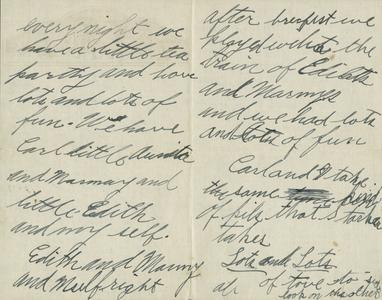 every night we
have a little tea
partty and have
lots and lots of
fun. We have
Carl little
and Mamay and
little Edith
and my self.
Edith and Mamy
and

after brecfist we
played with the
train of Ediths
and Marmys
and we had lots
and lots of fun
Carl and I take
the same kind
of pils that
takes
Lots and Lots
of love to
look on the other